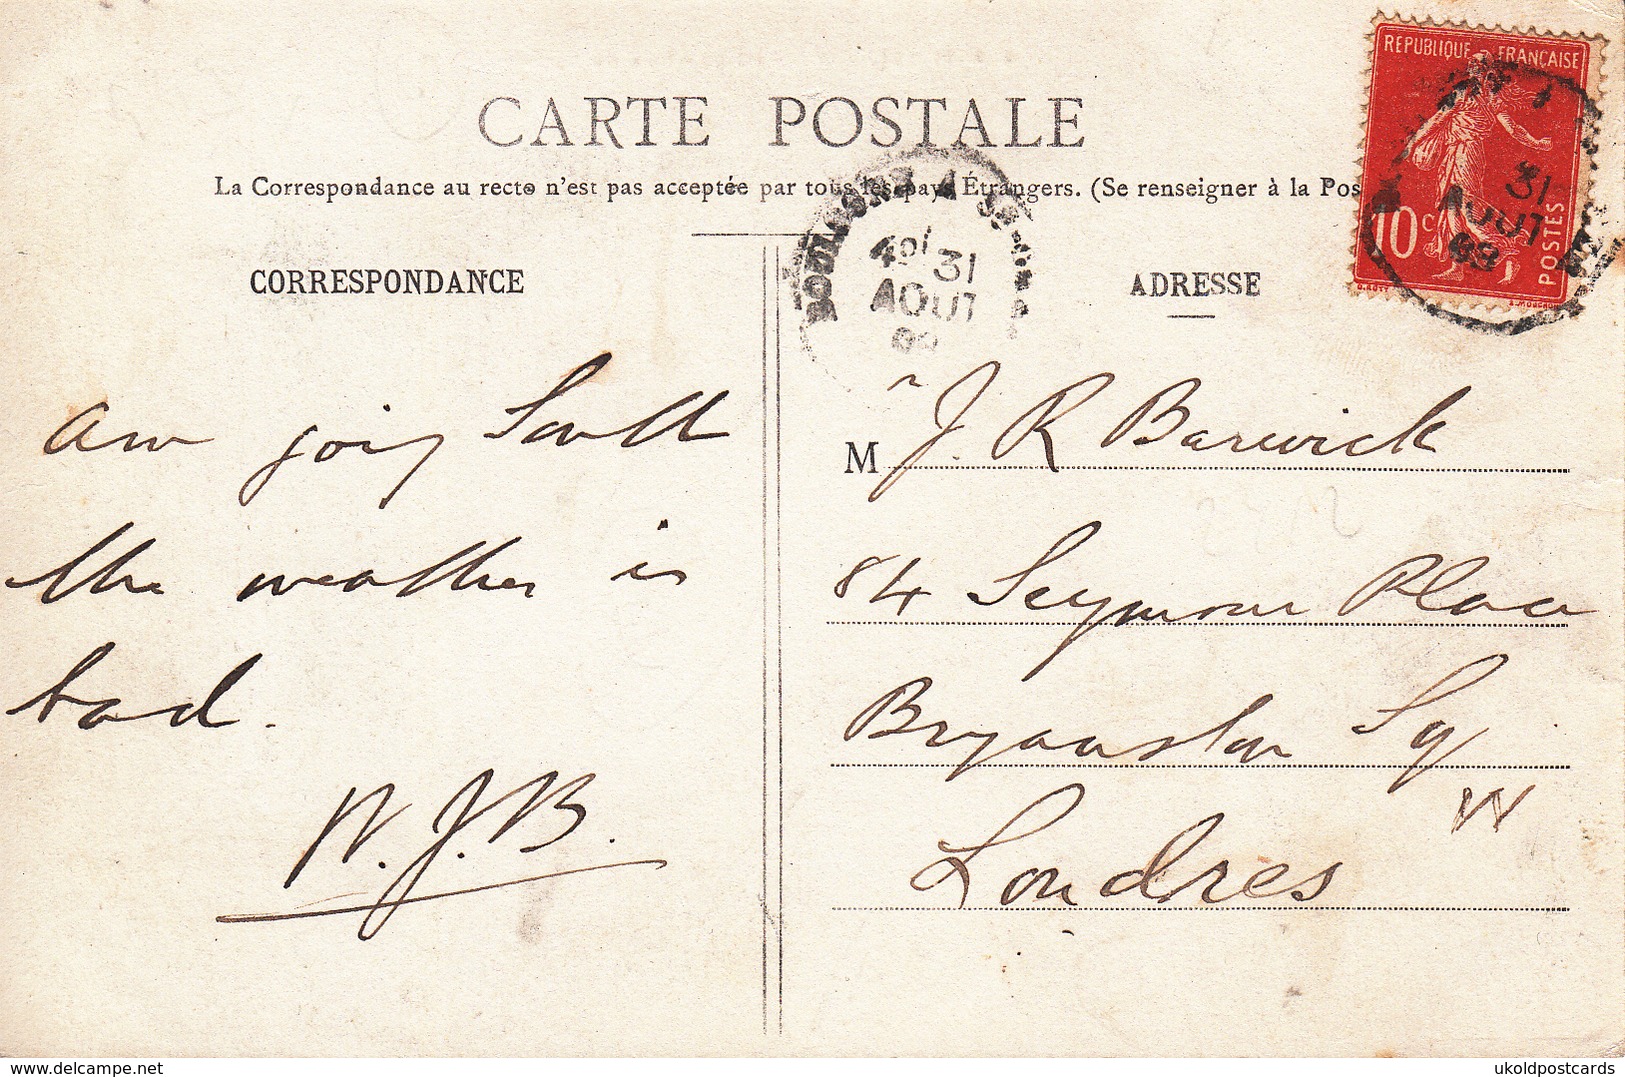 CARTE POSTALE
La Correspondance au recto n'est pas acceptée par tous les pays Étrangers. (Se renseigner à la Pos
CORRESPONDANCE
ADRESSE
REPUBLIQUE FRANÇAISE
10c
POSTES
31
AOUT
08
BOULOGNE
31
AOUT
am going South
the weather is
bad.
W.J.B.
Mr J. R Barwick
84 Seymour Place
Bryanston Sq
W
Londres
www.delcampe.net
ukoldpostcards